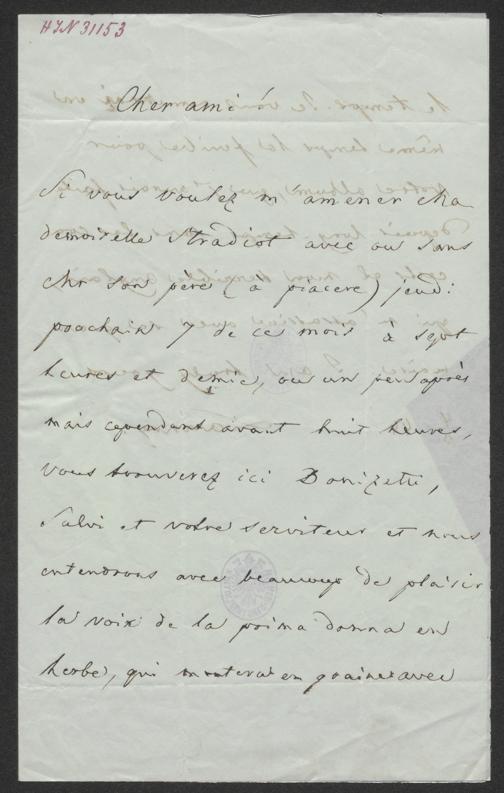 HIN 31153
Cher ami
Si vous voulez m'amener Ma
demoiselle Stradiot avec ou sans
Mr son père (a piacere) jeudi
prochain 7 de ce mois à sept
heures et demie, ou un peu après
mais cependant avant huit heures,
vous trouverez ici Donizetti,
Salvi et votre serviteur et nous
entendrons avec beaucoup de plaisir
la voix de la prima donna en
herbe, qui montera en graine avec